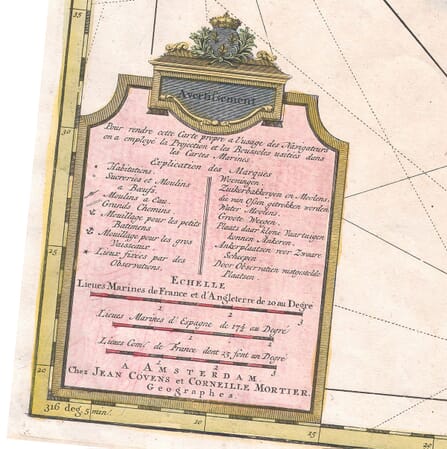 Avertissement
Pour rendre cette Carte propre a l'usage des Navigateurs
on a employé la Projection et les Boussoles usitées dans
les Cartes Marines.
Explication des Marques
Habitations.
Sucreries et Moulins
a Bœufs.
Moulins a Eau.
Grands Chemins.
Mouillage pour les petits
Batimens
Mouillage pour les gros
Vaisseaux
Lieux fixées par des
Observations.
Wooningen.
Zuikerbakkeryen en Moolens,
die van Ossen getrokken worden
Water Moolens.
Groote Weegen
Plaats daar klyne Vaartuigen
konnen Ankeren.
Ankerplaatsen voor Zwaare
Scheepen
Door Observatien
Plaatsen.
ECHELLE
Lieues Marines de France et d'Angleterre de 20 au Degré
1 2 3
Lieues Marines d'Espagne de 17½ au Degré
1 2
Lieues Com.s de France dont 25 font un Degré
1 2 3
A AMSTERDAM.
Chez JEAN COVENS et CORNEILLE MORTIER.
Geographes.
35
30
25
20
316 deg. 5 min.
10
15
20